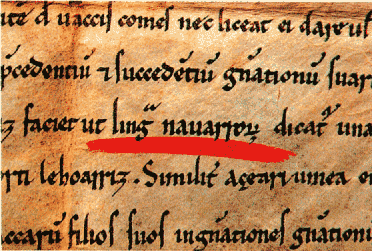 d uaccis comes nec liceat ei dare ul
p̄cedentiū ⁊ succedētiū gn̄ationū suar
faciet ut lingᷓ nauarroꝝ dicat᷑ una
lehoarriz. Similit̄ açeari umea
filios suos in gn̄ationes gn̄ationū